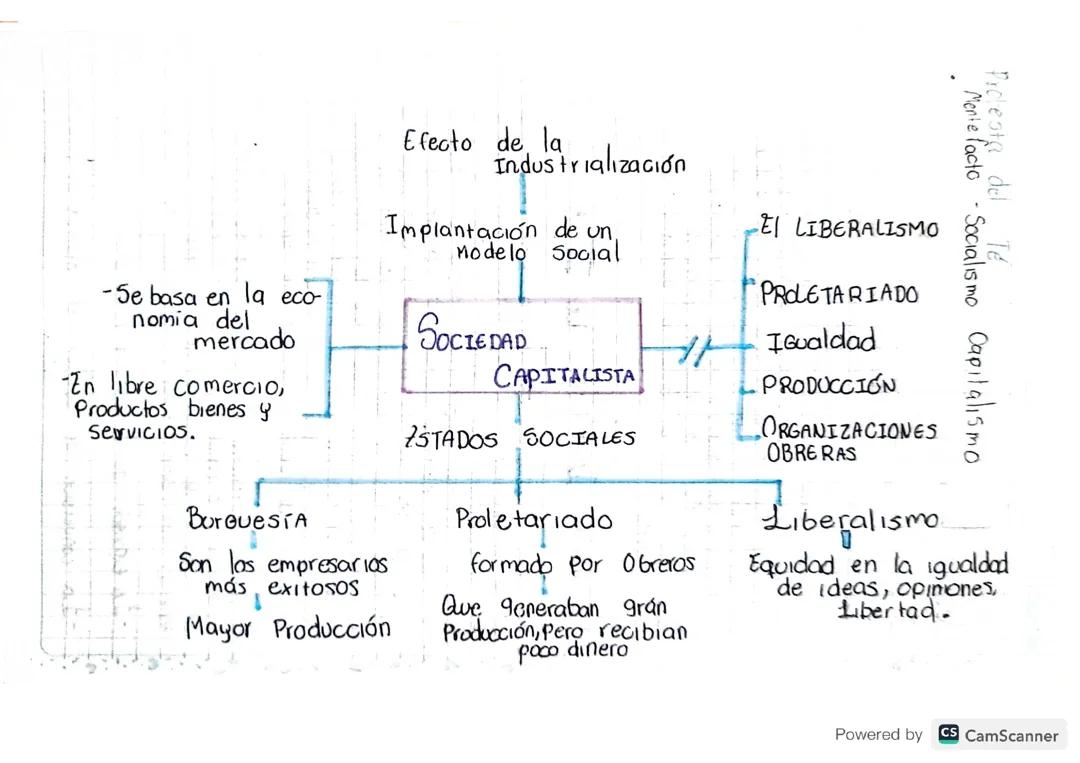 Protesta del Té
Mentefacto - Socialismo Capitalismo
Efecto de la
Industrialización
Implantación de un
Modelo Social
-Se basa en la eco-
nomia del
mercado
-En libre comercio,
Productos bienes y
servicios.
SOCIEDAD
CAPITALISTA
El LIBERALISMO
PROLETARIADO
Igualdad
PRODUCCIÓN
ORGANIZACIONES
OBRERAS
ESTADOS SOCIALES
Burguesía
Son los empresarios
más exitosos
Mayor Producción
Proletariado
formado por Obreros
Que generaban grán
Producción, Pero recibian
poco dinero
Liberalismo
Equidad en la igualdad
de ideas, opiniones,
Libertad.
Powered by CS CamScanner